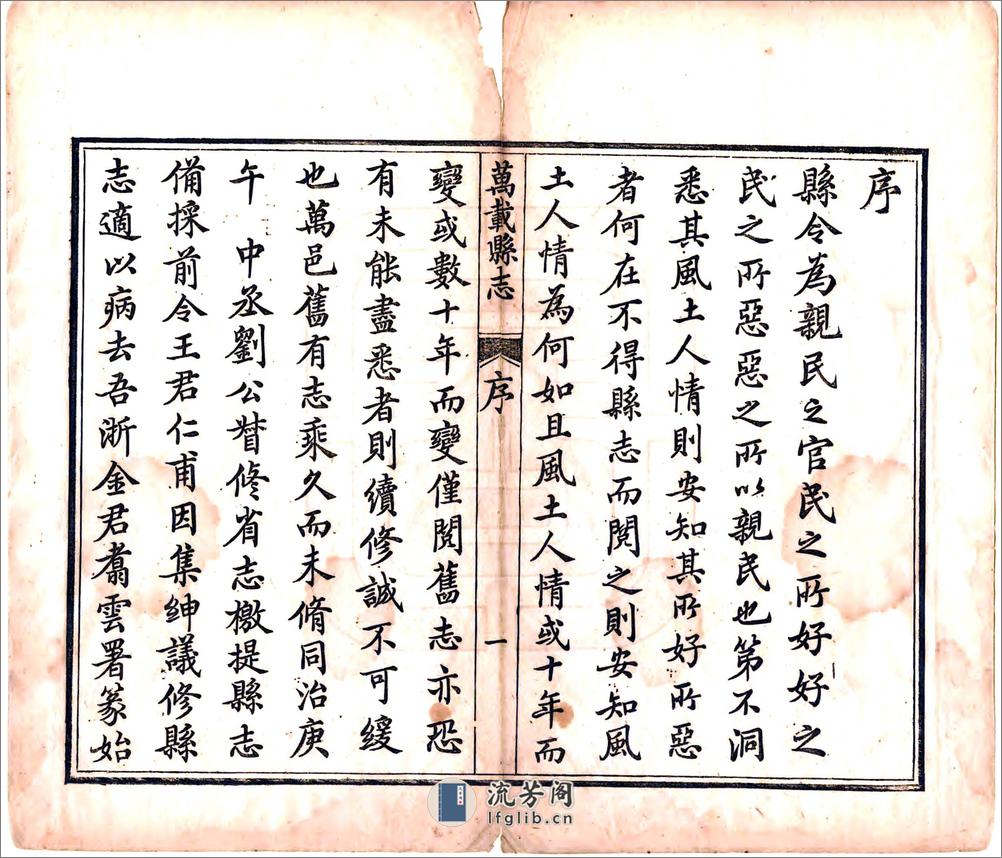 序
縣令為親民之官民之所好好之
民之所惡惡之所以親民也第不洞
悉其風土人情則安知其所好所惡
者何在不得縣志而閱之則安知風
土人情為何如且風土人情或十年而
萬載縣志
序
一
變或數十年而變僅閱舊志亦恐
有未能盡悉者則續修誠不可緩
也萬邑舊有志乘久而未脩同治庚
午 中丞劉公督修省志檄提縣志
備採前令王君仁甫因集紳議修縣
志適以病去吾浙金君翥雲署篆始
流芳阁
lfglib.cn